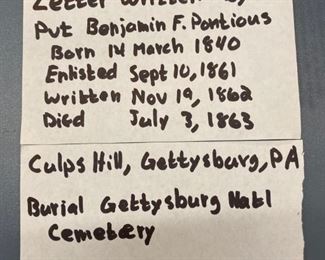 Letter written by
Pvt Benjamin F. Pontious
Born 14 March 1840
Enlisted Sept 10, 1861
Written Nov 19, 1862
Died July 3, 1863
Culps Hill, Gettysburg, PA
Burial Gettysburg Natl
Cemetary